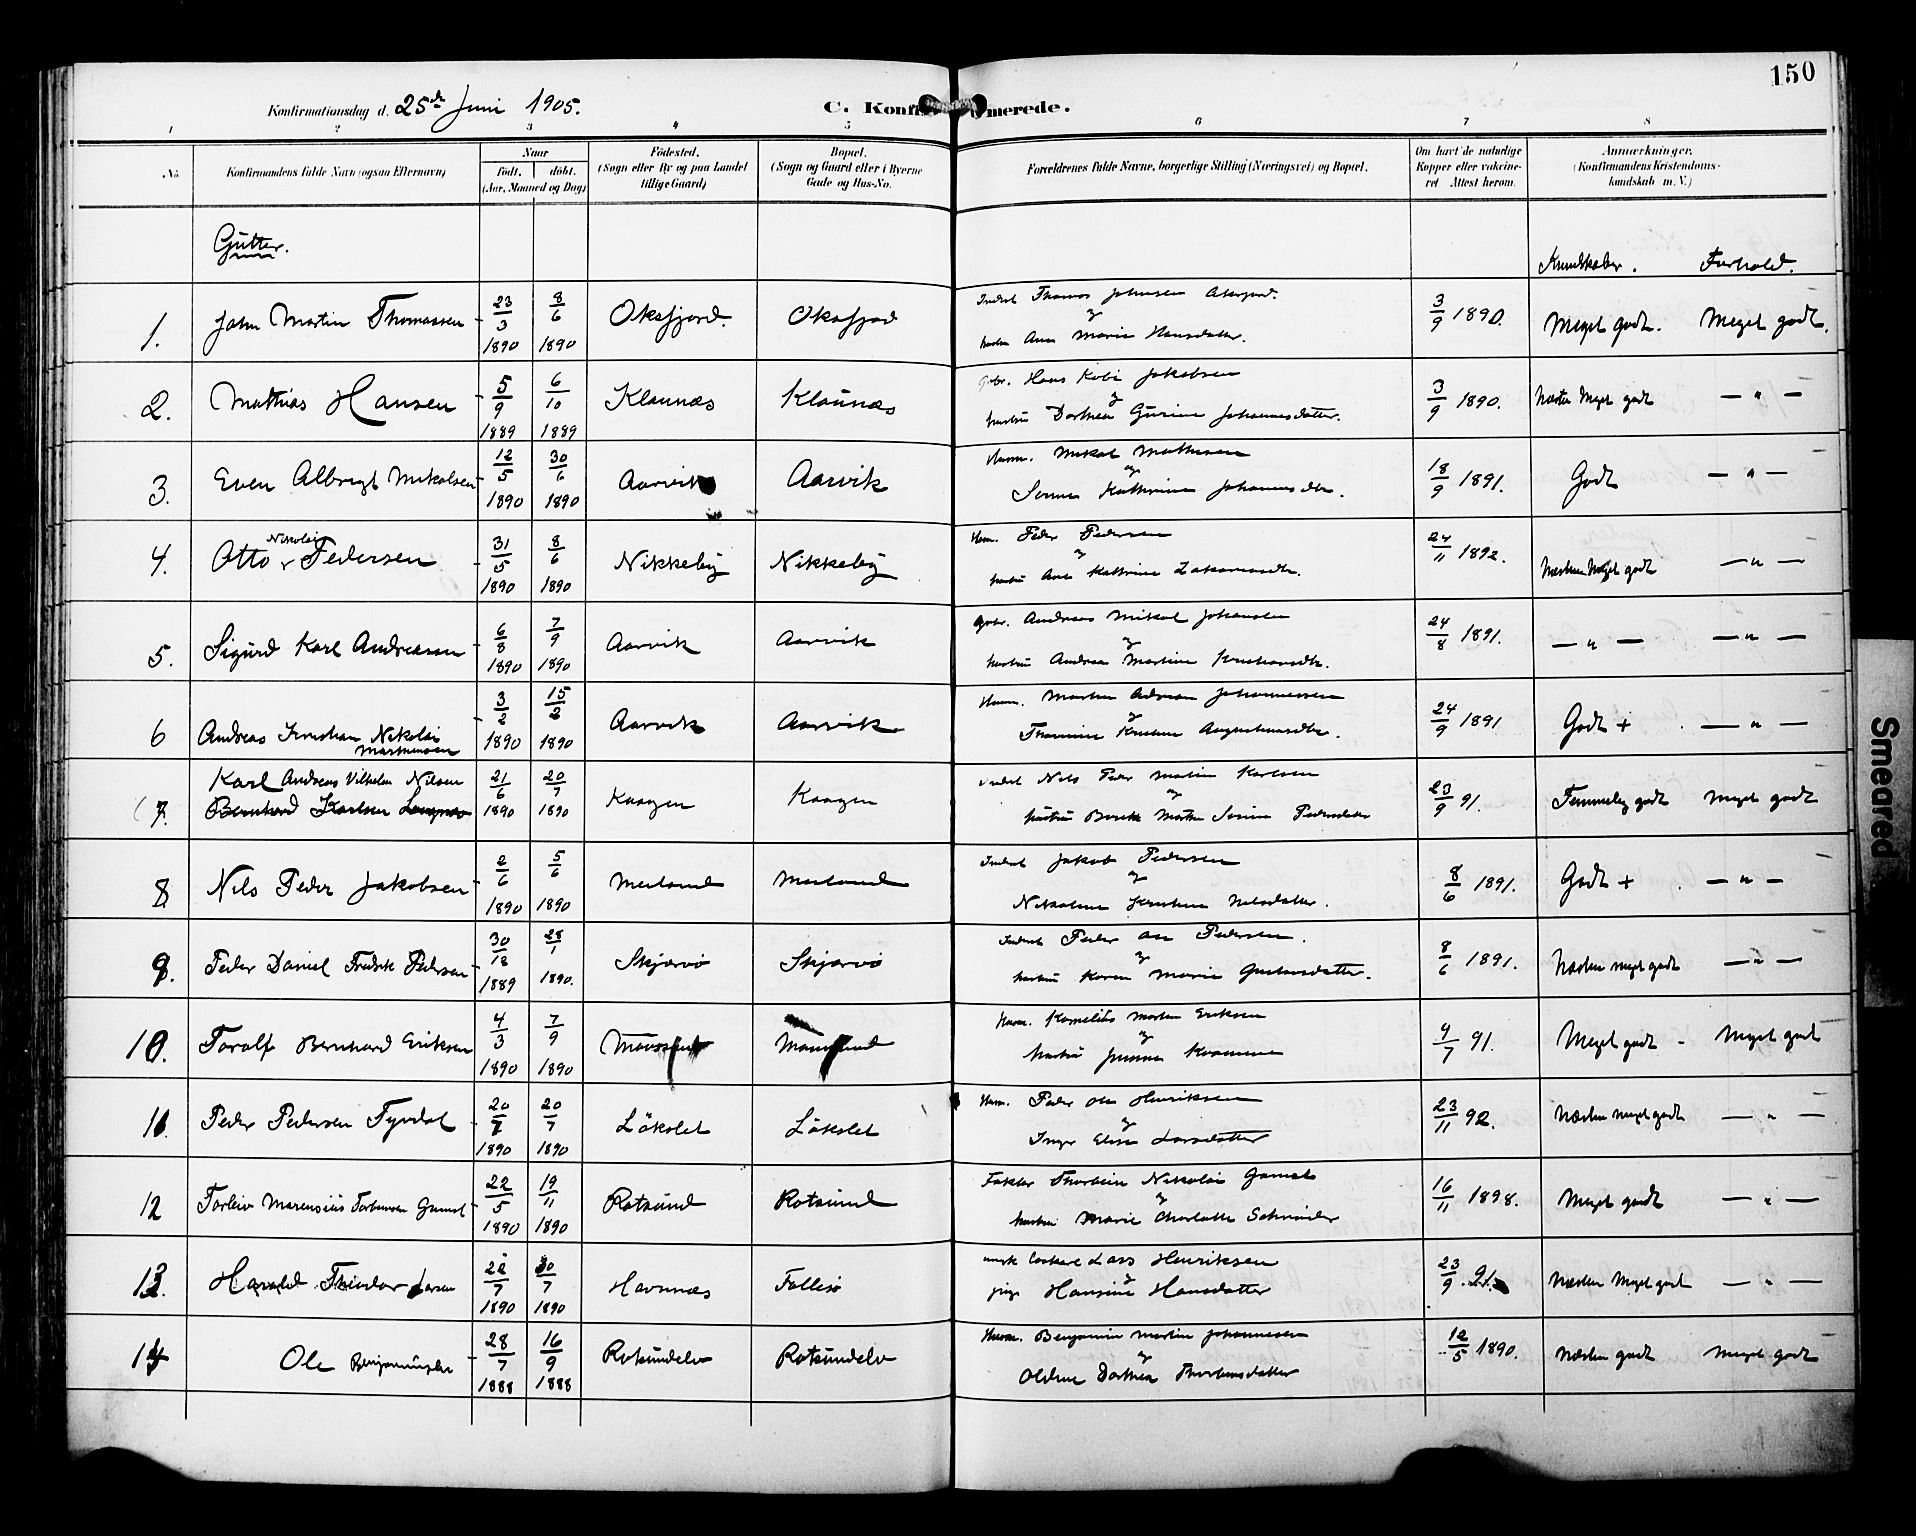 150
Konfirmationsdag d. 25de Juni 1905.
C. Konfirmerede.
1 2 3 4 5 6 7 8
No.
Konfirmandens fulde Navn (ogsaa Efternavn)
Naar
født. døbt.
(Aar, Maaned og Dag)
Fødested.
(Sogn eller By og paa Landet
tillige Gaard)
Bopæl.
(Sogn og Gaard eller i Byerne
Gade og Hus-No.
Forældrenes fulde Navne, borgerlige Stilling (Næringsvei) og Bopæl.
Om havt de naturlige
Kopper eller vakcine-
ret Attest herom.
Anmærkninger.
(Konfirmandens Kristendoms-
kundskab m. V.)
Gutter.
Kundskaber. Forhold.
1. John Martin Thomassen 23/3 1890 8/6 1890 Oksfjord. Oksfjord
Thomas Johnsen
og
Marie Hansdatter.
3/9 1890. Meget godt. Meget godt.
2. Mathias Hansen 5/9 1889 6/10 1889 Klaunæs Klaunæs
Gbr. Hans Jakobsen
og
hustru Dorthea Gurine Johannesdatter.
3/9 1890. Næsten Meget godt — " —
3. Even Albrigt Mikalsen 12/5 1890 30/6 1890 Aarvik Aarvik
Husm. Mikal Mathisen
og
Kathrine Johannesdtr.
18/9 1891. Godt — " —
4. Otto Nikolai Pedersen 31/5 1890 8/6 1890 Nikkeby Nikkeby
Husm. Peder Pedersen
og
hustru Ane Kathrine
24/11 1892. Næsten Meget godt — " —
5. Sigurd Karl Andreasen 6/8 1890 7/9 1890 Aarvik Aarvik
Gbr. Andreas Mikal Johansen
og
hustru Andrea Martine Kristiansdtr.
24/8 1891. — " — — " —
6 Andreas Kristian Nikolai
Martinusen 3/2 1890 15/2 1890 Aarvik Aarvik
Husm. Johannessen
og
Kristine Augustinusdtr.
24/9 1891 Godt + — " —
7. Karl Andreas Vilhelm Nilsen
Bernhard Karlsen 21/6 1890 20/7 1890 Kaagen Kaagen
Nils Peder Martin Karlsen
og
hustru Berit Marthe Pedersdatter
23/9 91. Temmelig godt Meget godt
8 Nils Peder Jakobsen 2/6 1890 5/6 1890 Meiland Meiland
Jakob Pedersen
og
Nikoline Kristine Nilsdatter.
8/6 1891. Godt + — " —
9. Peder Daniel Fredrik Pedersen 30/12 1889 28/1 1890. Skjærvø Skjærvø
Peder Pedersen.
og
hustru Karen Marie Gustavsdatter.
8/6 1891. Næsten meget godt — " —
10. Toralf Bernhard Eriksen 4/3 1890 7/9 1890
Husm. Kornelius Morten Eriksen
og
hustru
9/7 91. Meget godt - Meget godt
11. Peder Pedersen Fyrdal 20/7 1890 20/7 1890 Løkslet Løkslet
Husm. Peder Ole Henriksen
og
Inger Elise Larsdatter
23/11 92. Næsten meget godt — " —
12 Torleiv 22/5 1890 19/11 1890 Rotsund Rotsund
Faktor Nikolai
og
hustru Marie Charlotte
16/11 1898. Meget godt — " —
13. Harald Theodor Larsen 22/7 1890 30/7 1890 Havnnæs Follesø
Lars Henriksen
og
pige Hansine Hansdatter
23/9 91. Næsten Meget godt — " —
14 Ole Benjaminsen 28/7 1888 16/9 1888 Rotsundelv Rotsundelv
Husm. Benjamin Martin Johannesen
og
Oldine Dorthea
12/5 1890. Næsten godt Meget godt
Smeared